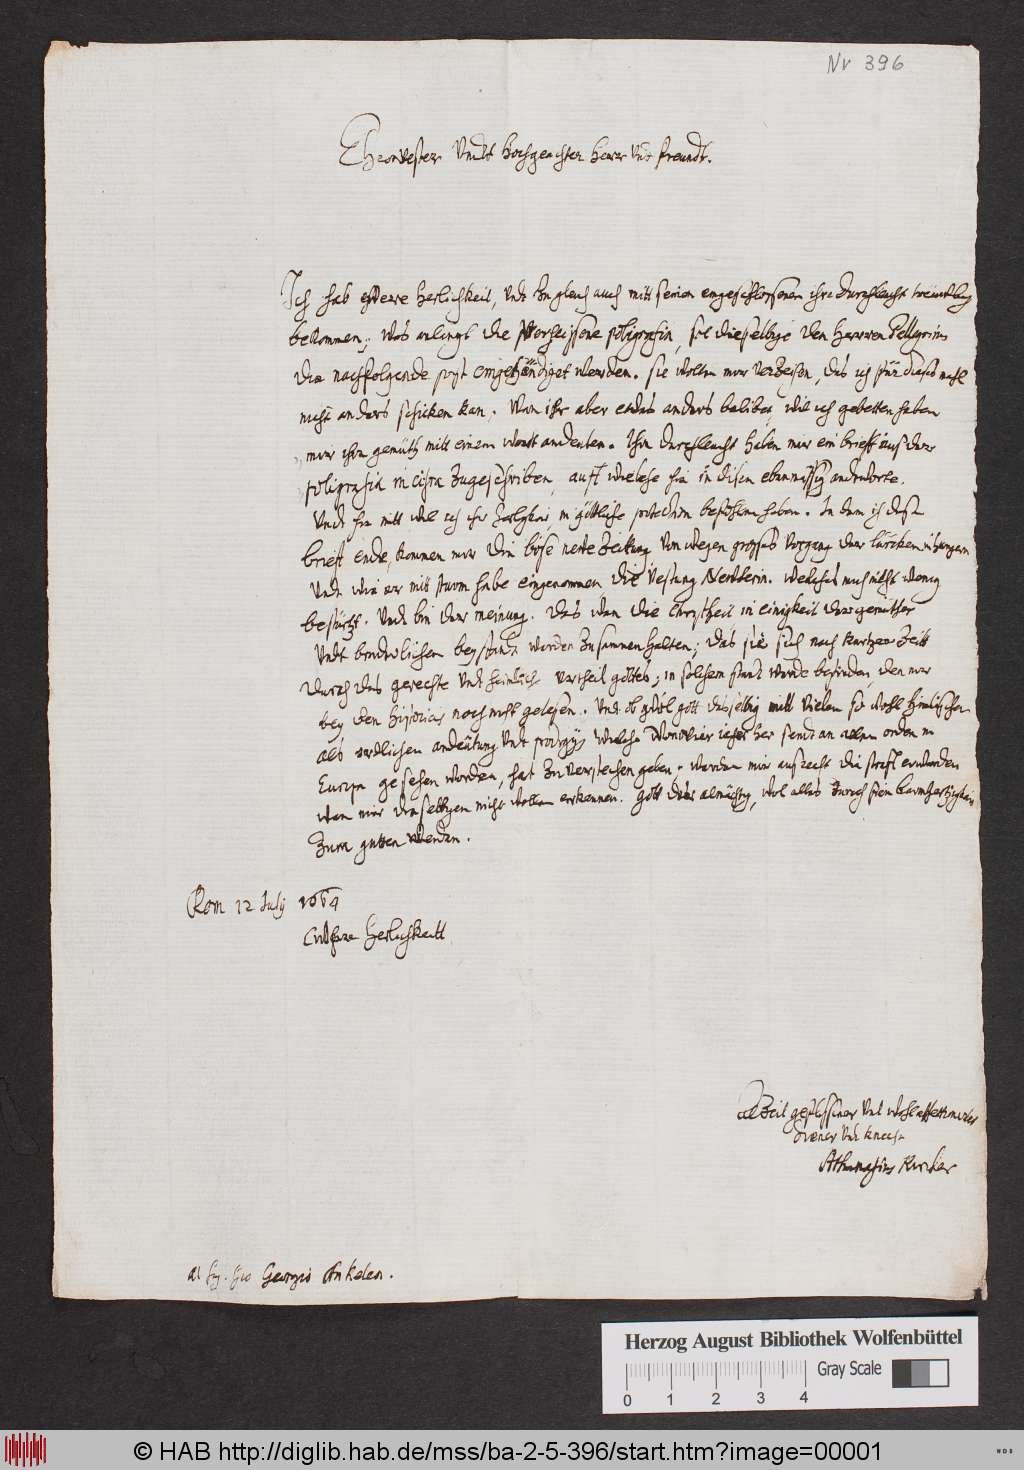 Nr 396
Ehrnvester Undt hochgeachter Herr Undt freundt.
Ich hab Herlichkeit, Undt Zu gleich auch mitt seinen eingeschlossenen ihr durchleucht
bekommen; was anlangt die poligrafia, sol dieselbige den Herrren Pellegrini
die nachfolgende post eingehändiget werden. sie wollen mir verzeihen, das ich für dieses mahl
nicht anders schicken kan. Wan ihr aber etwas anders beliebet, wil ich gebetten haben
mir ihr gemüth mitt einem wortt andeuten. Ihr durchleucht haben mir ein brieff aus der
poligrafia in Zugeschriben, auff welche hie in disen andtworte.
Undt hie mitt wil ich ihr in göttliche protection befohlen haben. In dem ich disen
brieff ende, kommen mir die böse neue Zeittung Von wegen grosses Vorgang der türcken in Hungern
Undt wie er mitt sturm habe eingenommen die Vestung welches mich nicht wenig
bestürtzt. Undt bin der meinung. das wan die in einigkeit der gemüther
Undt brüderlichen beystandt werden Zusammen halten; das sie sich nach kurtzer Zeitt
durch das gerechte Undt heimlich Urtheil gottes, in solchem standt werde befinden den wir
bey den Historicis noch nicht gelesen. Undt ob wohl gott dasselbig mitt vielen so wohl himlischen
als erdlichen andeutung Undt prodigijs welche jahr her seindt an allen orden in
Europa gesehen worden, hat Zu verstehen geben. werden mir aus recht die straff erwarden
wan mir dieselbigen nicht wollen erkennen. gott der almächtig, wol alles durch sein barmhertzigkeit
Zum gutten wenden.
Rom 12 July 1664
Herlichkeitt
geflissner Undt
diener Undt knecht
Athanasius Kircher
Al Sig. Gio Georgio Ankelen.
Herzog August Bibliothek Wolfenbüttel
Gray Scale
0 1 2 3 4
© HAB http://diglib.hab.de/mss/ba-2-5-396/start.htm?image=00001
WDB